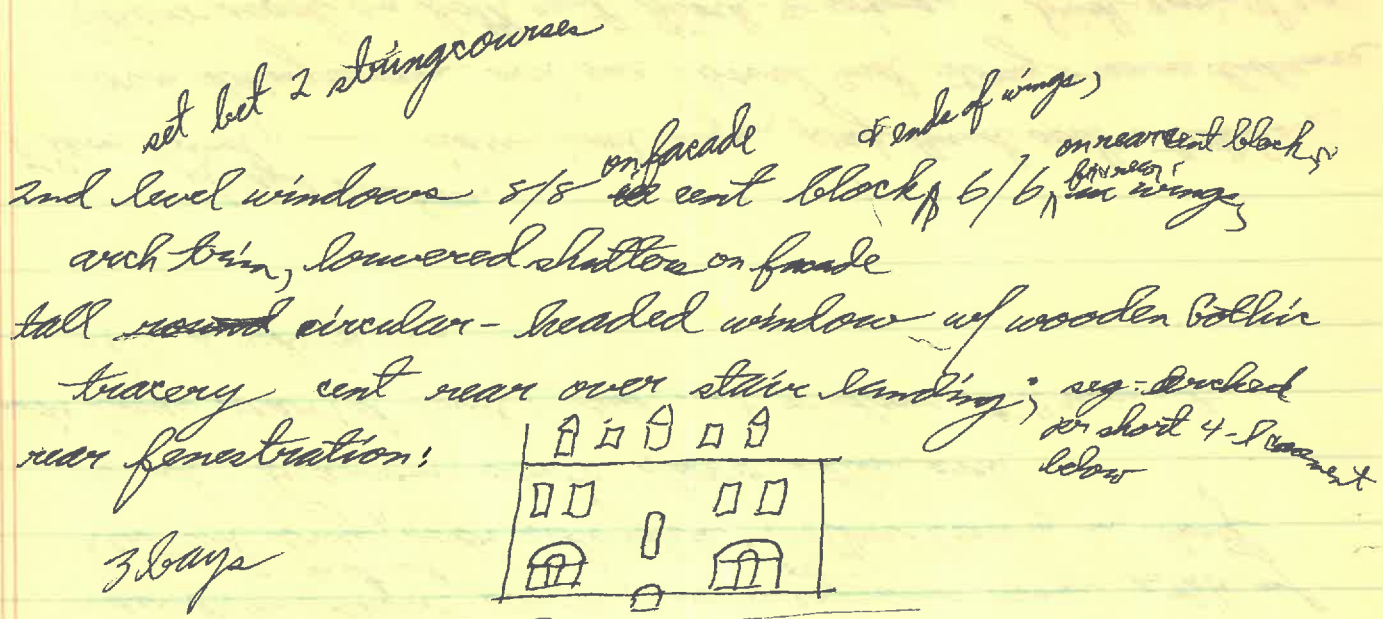 set bet 2 stringcourses
2nd level windows 8/8 on facade cent block, & ends of wings, 6/6, on rear cent block, in wings,
arch trim, louvered shutters on facade
tall round circular-headed window w/ wooden Gothic
tracery cent rear over stair landing; seg-arched
rear fenestration: short 4-l
below
3 bays